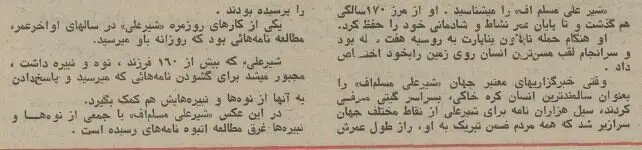 «شیر علی مسلم اف» را میشناسید. او از مرز ۱۷۰سالگی
هم گذشت و تا پایان عمر نشاط و شادمانی خود را حفظ کرد.
او هنگام حمله ناپلئون بناپارت به روسیه هفت ، له بود
و سرانجام لقب مسن‌ترین انسان روی زمین رابخود اختصاص
داد .
وقتی خبرگزاریهای معتبر جهان «شیرعلی مسلم‌اف» را
بعنوان سالمندترین انسان کره خاکی، بسراسر گیتی معرفی
کردند، سیل هزاران نامه برای شیرعلی از نقاط مختلف جهان
سرازیر شد که همه مردم ضمن تبریک به او، راز طول عمرش
را پرسیده بودند .
یکی از کارهای روزمره «شیرعلی» در سالهای اواخرعمر،
مطالعه نامه‌هائی بود که روزانه باو میرسید.
شیرعلی، که بیش از ۱۶۰ فرزند ، نوه و نبیره داشت ،
مجبور میشد برای گشودن نامه‌هائی که میرسید و پاسخ‌دادن
به آنها از نوه‌ها و نبیره‌هایش هم کمک بگیرد.
در این عکس «شیرعلی مسلم‌اف» با جمعی از نوه‌هــا و
نبیره‌ها غرق مطالعه انبوه نامه‌های رسیده است .